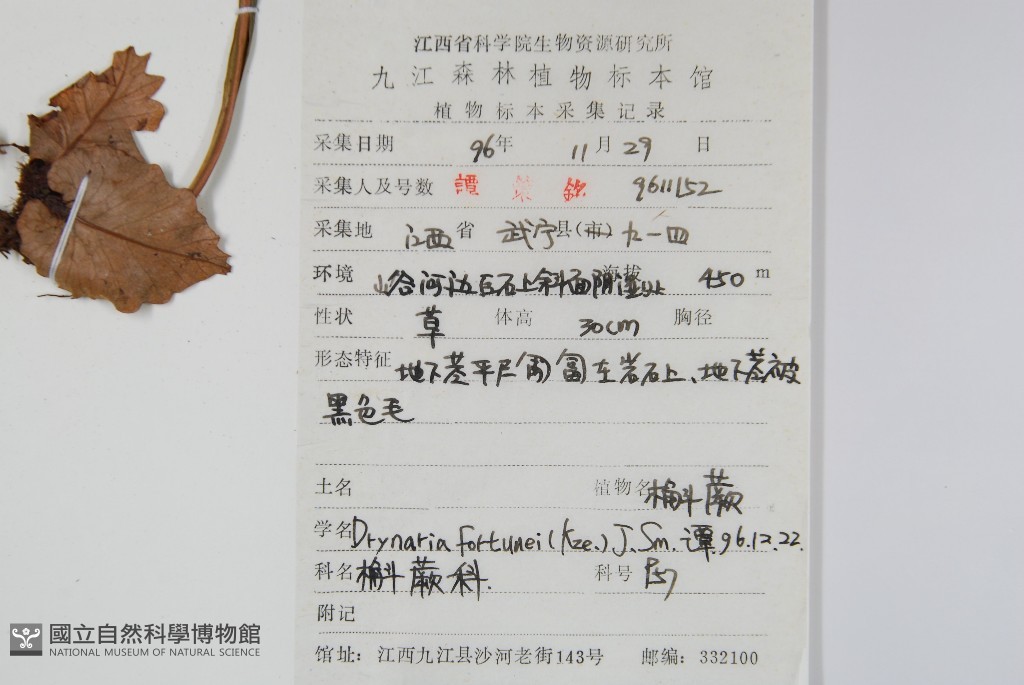 江西省科学院生物资源研究所
九江森林植物标本馆
植物标本采集记录
采集日期 96年 11月29 日
采集人及号数 譚策銘 9611152
采集地 江西省 武宁县(市)九一四
环境 山谷河边巨石上斜面阴湿处 海拔 450 m
性状 草 体高 30cm 胸径
形态特征 地下茎平 在岩石上、地下茎被
黑色毛
土名 植物名 槲蕨
学名 Drynaria fortunei (Kze.) J. Sm. 谭 96.12.22.
科名 槲蕨科. 科号 P57
附记
馆址：江西九江县沙河老街143号 邮编：332100
國立自然科學博物館
NATIONAL MUSEUM OF NATURAL SCIENCE